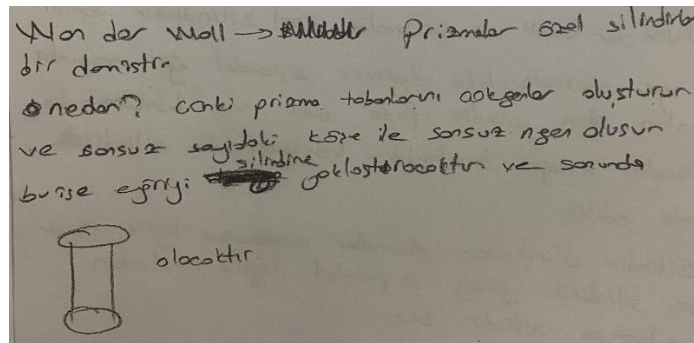 Wan der Wall → Prizmalar özel silindirler
bir
neden? Çünki prizma tabanlarını çokgenler oluşturur
ve sonsuz sayıdaki köşe ile sonsuz ngen oluşur
bu ise eğriyi silindire yaklaştıracaktır ve sonunda
olacaktır.